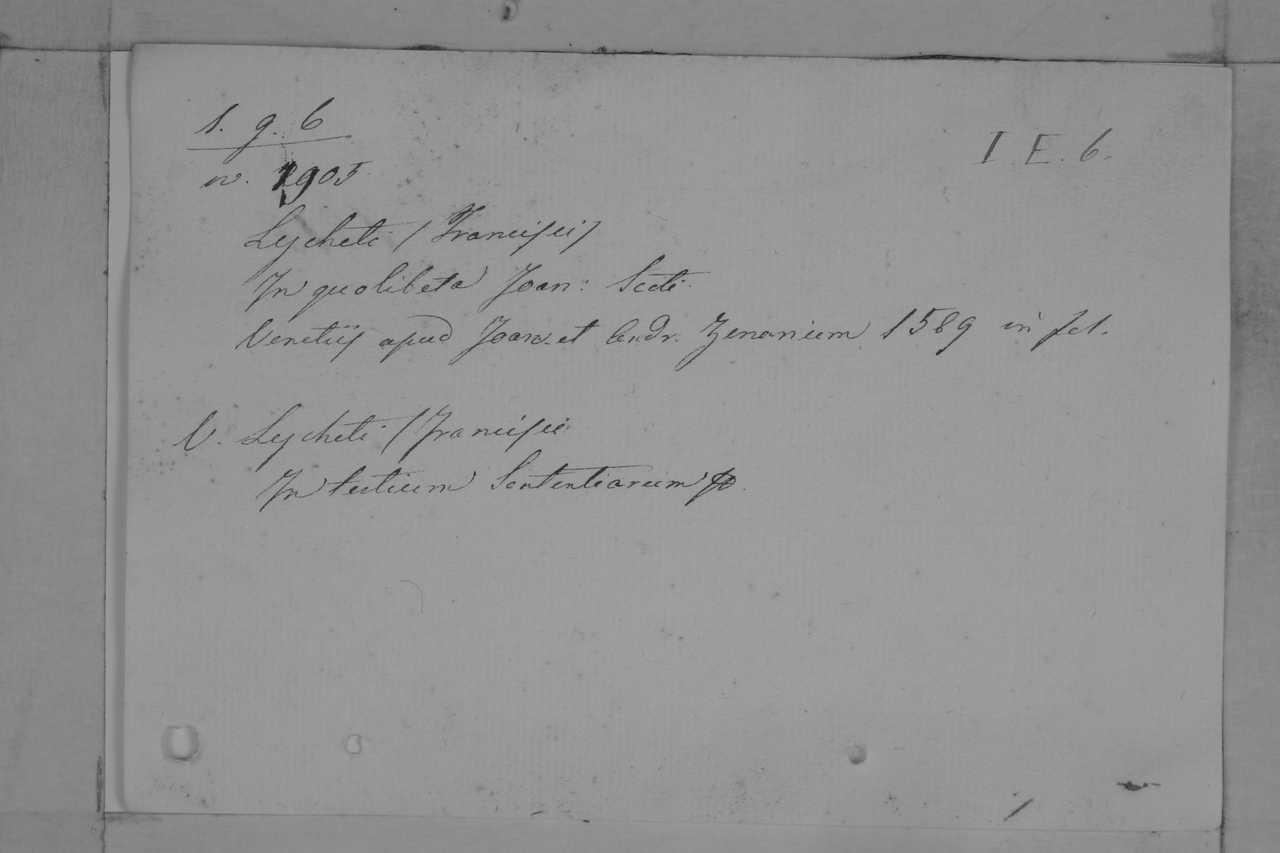 1. g. 6
I E. 6.
n. 1905
Lycheti /Francisci/
In quolibeta Joan: Scoti.
Venetiis apud Joan. et Andr. Zenarium 1589 in fol.
V. Lycheti /Francisci
In tertium Sententiarum